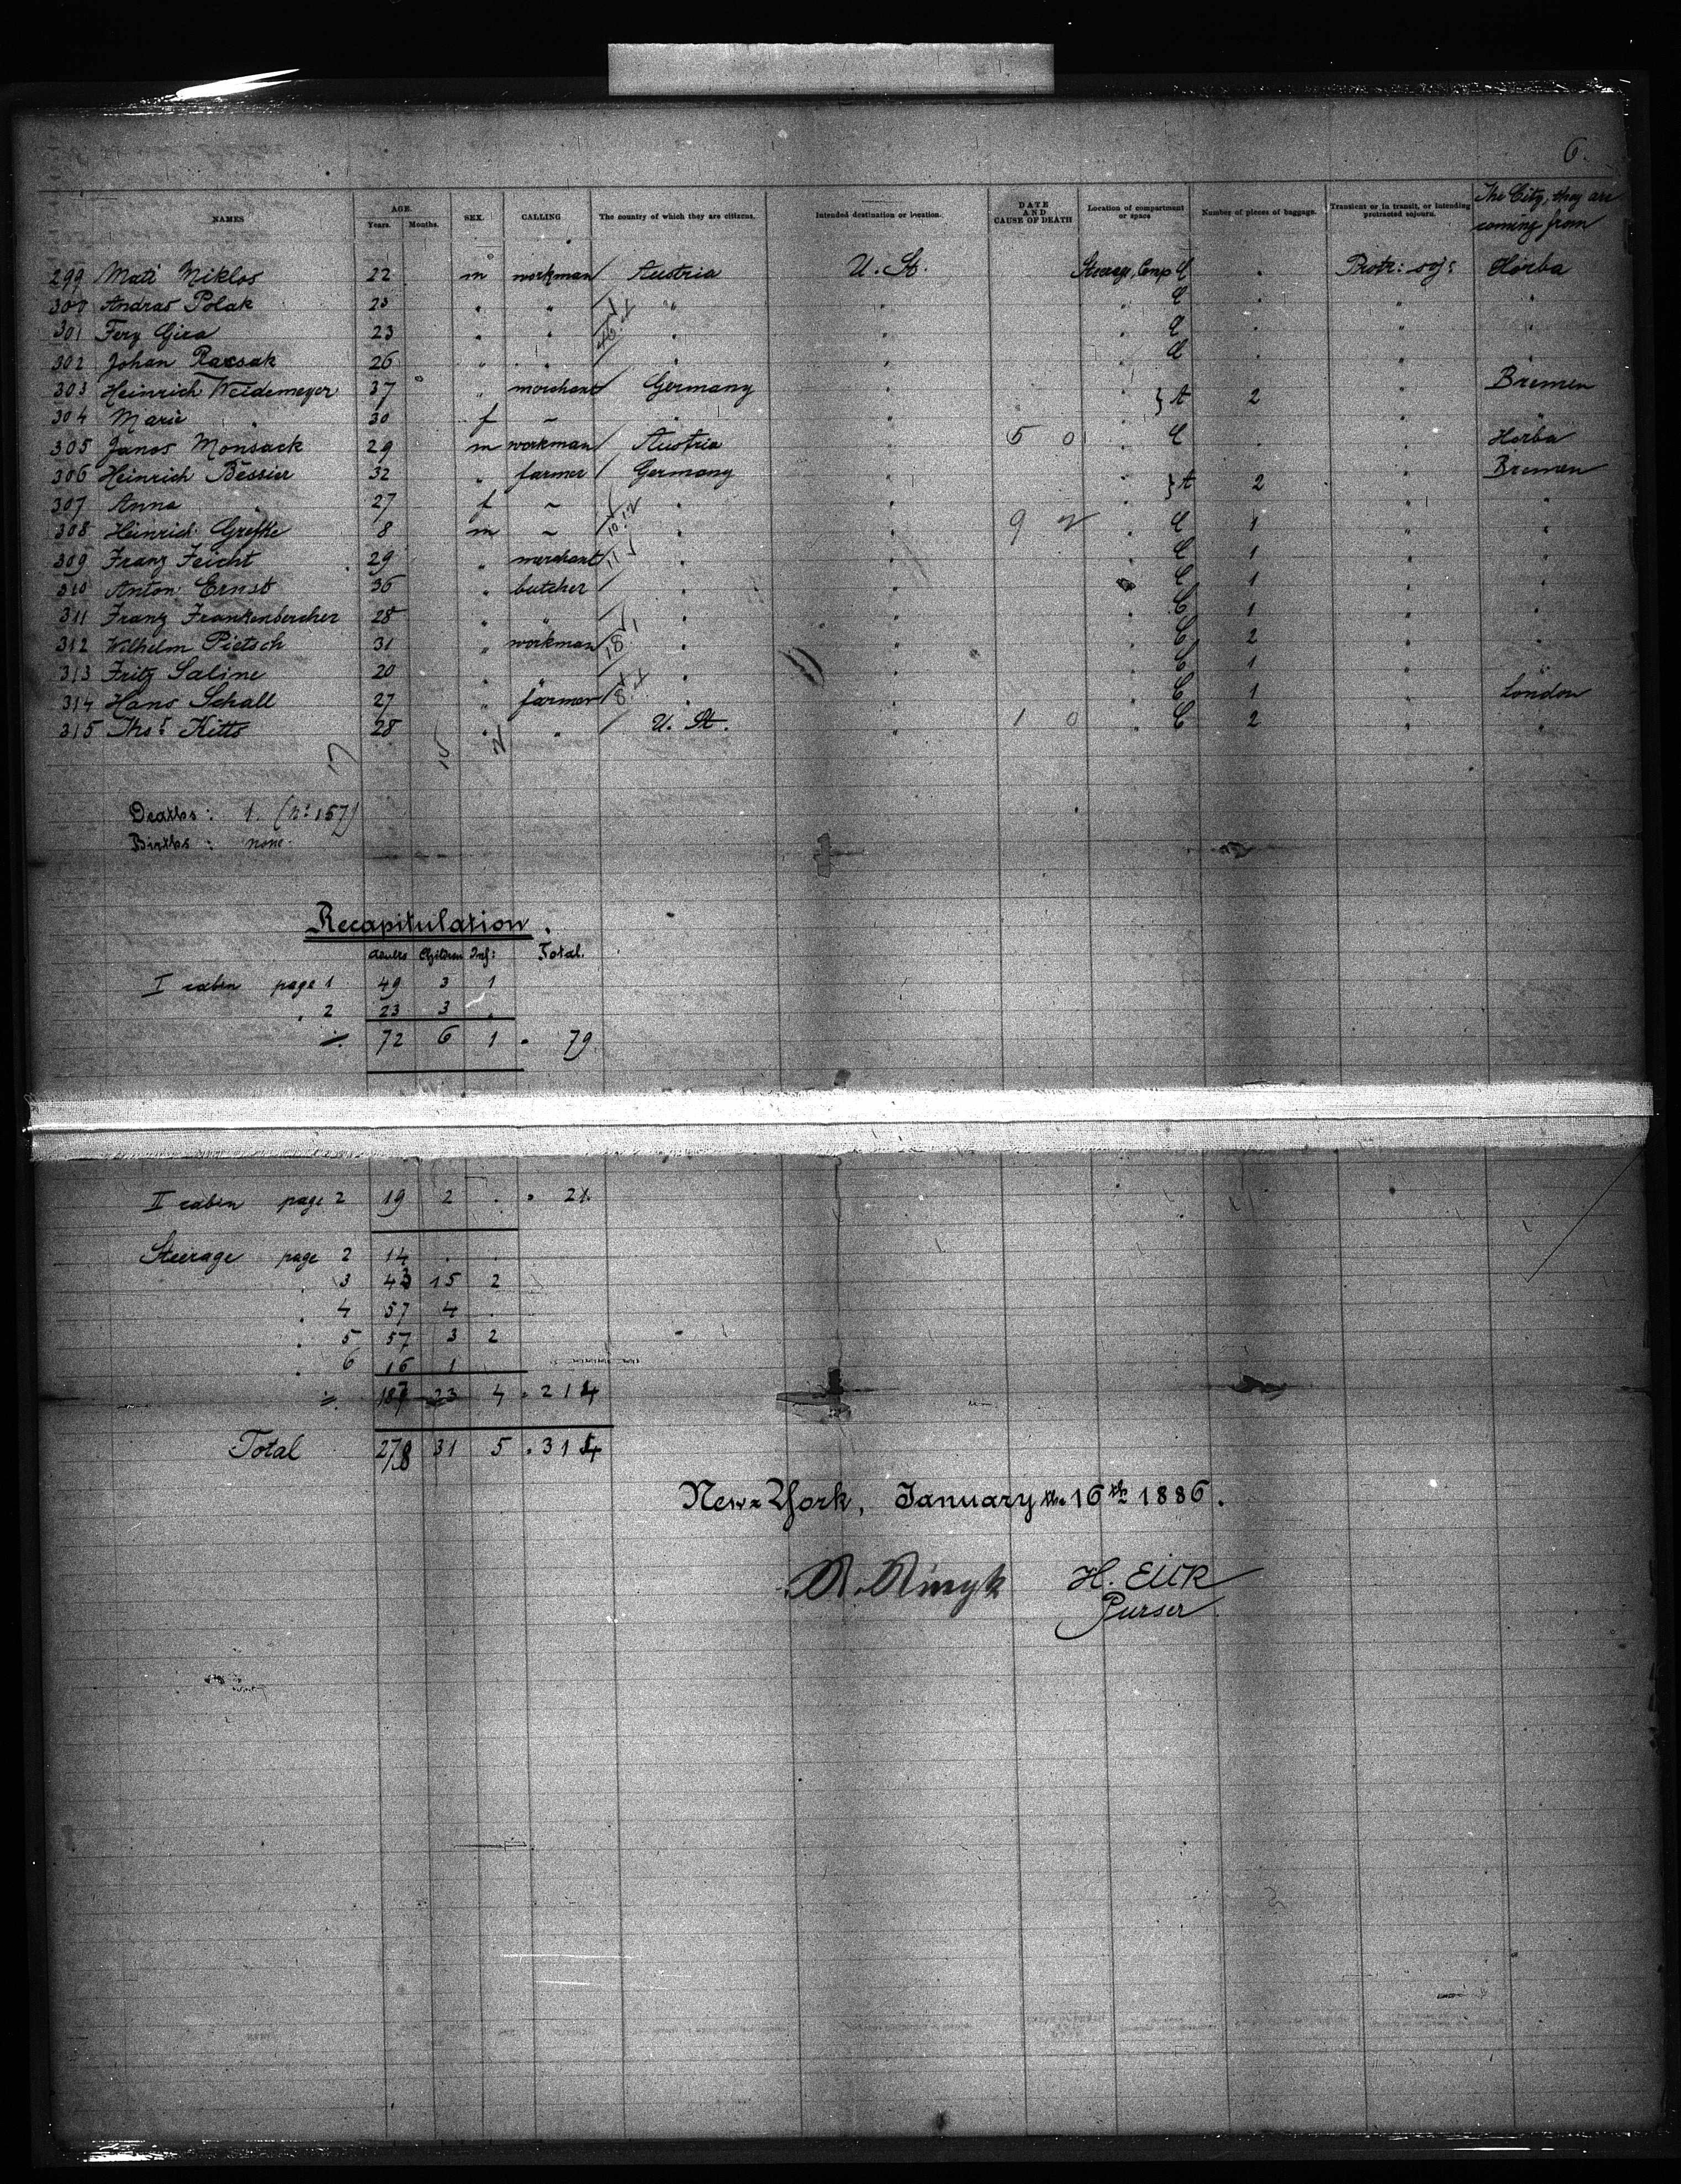 6.
NAMES AGE. Years. Months. SEX. CALLING The country of which they are citizens. Intended destination or location. DATE AND CAUSE OF DEATH Location of compartment or space Number of pieces of baggage. Transient or in transit, or intending protracted sojourn. The City, they are coming from
299 Mati Miklos 22 m workman Austria U. St. Steerage, Comp C . Protr: soj: Horba
300 Andras Polak 23 " " " " " C . " "
301 Fery Gira 23 " " " " " C . " "
302 Johan Racsak 26 " " " " " C . " "
303 Heinrich Weidemeyer 37 " merchant Germany " " } A 2 " Bremen
304 Marie " 30 f ~ " " " " "
305 Janos Monsack 29 m workman Austria " 5 0 " C . " Horba
306 Heinrich Bessier 32 " farmer Germany " " } A 2 " Bremen
307 Anna " 27 f ~ " " " " "
308 Heinrich Grefthe 8 m ~ " " 9 2 " C 1 " "
309 Franz Feicht 29 " merchant 11 " " " C 1 " "
310 Anton Ernst 36 " butcher " " " C 1 " "
311 Franz Frankenbercher 28 " " " " " C 1 " "
312 Wilhelm Pietsch 31 " workman 18 " " " C 2 " "
313 Fritz Saline 20 " " " " " C 1 " "
314 Hans Schall 27 " farmer 8 " " " C 1 " London
315 Ths: Kitts 28 " " U. St. " 1 0 " C 2 " "
17
Deaths: 1. (No: 157)
Births: none.
Recapitulation.
adults Children Inf: Total.
I cabin page 1 49 3 1
" 2 23 3 .
72 6 1 = 79.
II cabin page 2 19 2 . = 21.
Steerage page 2 14 . .
" 3 43 15 2
" 4 57 4 .
" 5 57 3 2
" 6 16 1
187 23 4 = 214
Total 278 31 5 = 314
New-York, January the 16th 1886.
R. Ringk H. Eilk
Purser